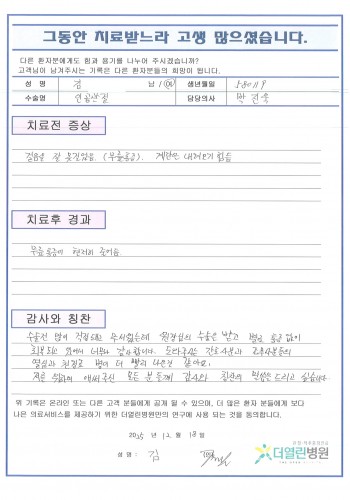 그동안 치료받느라 고생 많으셨습니다.
다른 환자분에게도 힘과 용기를 나누어 주시겠습니까?
고객님이 남겨주시는 기록은 다른 환자분들의 희망이 됩니다.
성 명 김 남 / 여 생년월일 580119
수술명 인공관절 담당의사 박
치료전 증상
걸음을 잘 못 걷겠음. (무릎통증). 계단은 내려가기 힘듦
치료후 경과
무릎 통증이 현저히 줄어듦.
감사와 칭찬
수술전 많이 걱정되고 무서웠는데 원장님의 수술을 받고 별로 통증 없이
회복되고 있어서 너무나 감사합니다. 도와주시는 간호사분과 분들의
열심과 친절로 병이 더 빨리 나은것 같아요.
위해 애써주신 모든 분들께 감사와 칭찬의 말씀을 드리고 싶습니다.
위 기록은 온라인 또는 다른 고객 분들에게 공개 될 수 있으며, 더 많은 환자 분들에게 보다
나은 의료서비스를 제공하기 위한 더열린병원만의 연구에 사용 되는 것을 동의합니다.
2025 년 12 월 18 일
성 명 : 김
더열린병원